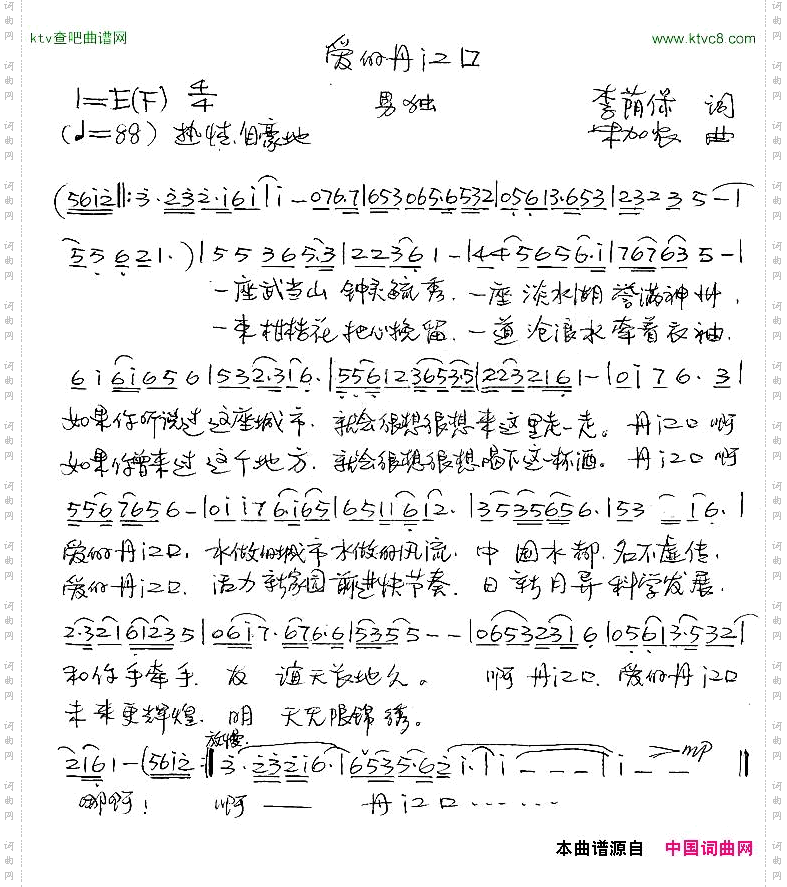 ktv查吧曲谱网 www.ktvc8.com
爱的丹江口
1=E(F) 4/4 男独 李荫保 词
(♩=88) 热情、自豪地 朱加农 曲
(56i2‖:3·232·16i|i-076·7|653065·6532|05613·653|23235-|
55621·)|55365·3|22361-|445656·i|767635-|
一座武当山 钟灵毓秀，一座淡水湖 誉满神州，
一束柑桔花 把心挽留，一道沧浪水 牵着衣袖，
6i6i656|532·316·|556123653535|2232161-|0i76·3|
如果你听说过这座城市，就会很想很想来这里走一走。丹江口 啊
如果你曾来过这个地方，就会很想很想喝下这一杯酒。丹江口 啊
5567656-|0ii76·i65|65116i2·|3535656·|53i6·|
爱的丹江口，水做的城市水做的风流，中国水都，名不虚传，
爱的丹江口，活力新家园前进快节奏，日新月异科学发展，
2·32161235|06i7·676·6|5355--|065323i6|0561 3·532|
和你手牵手，友谊天长地久。 啊 丹江口，爱的丹江口
未来更辉煌，明天无限锦绣。
放慢
2161-(56i2:‖3·232i6·|6535·62i·|i---|i-- mp‖
哪啊！ 啊—— 丹江口……
本曲谱源自 中国词曲网
词曲网